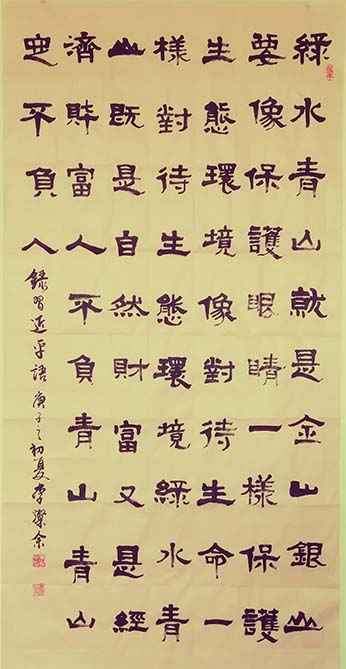 綠水青山就是金山銀山
要像保護眼睛一樣保護
生態環境像對待生命一
樣對待生態環境綠水青
山既是自然財富又是經
濟財富人不負青山青山
定不負人
錄習近平語庚子之初夏李